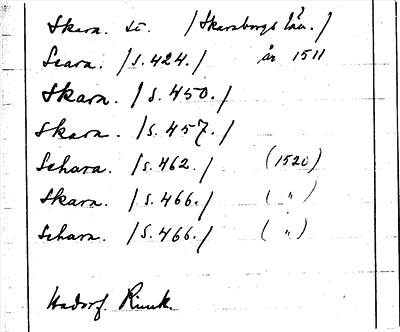 Skara. st. /Skaraborgs län./
Scara. /s. 424./ år 1511
Skara. /s. 450./
Skara. /s. 457./
Schara. /s. 462./ (1520)
Skara. /s. 466./ ( " )
Schara. /s. 466./ ( " )
Hadorf. Rimk.